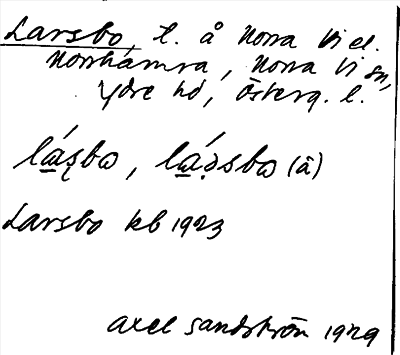 Larsbo, t. å Norra Vi el.
Norrhamra, Norra Vi sn,
Ydre hd, Österg. l.
lá̠ʂbɷ, lá̠ẓsbɷ (å)
Larsbo kb 1923
Axel Sandström 1929